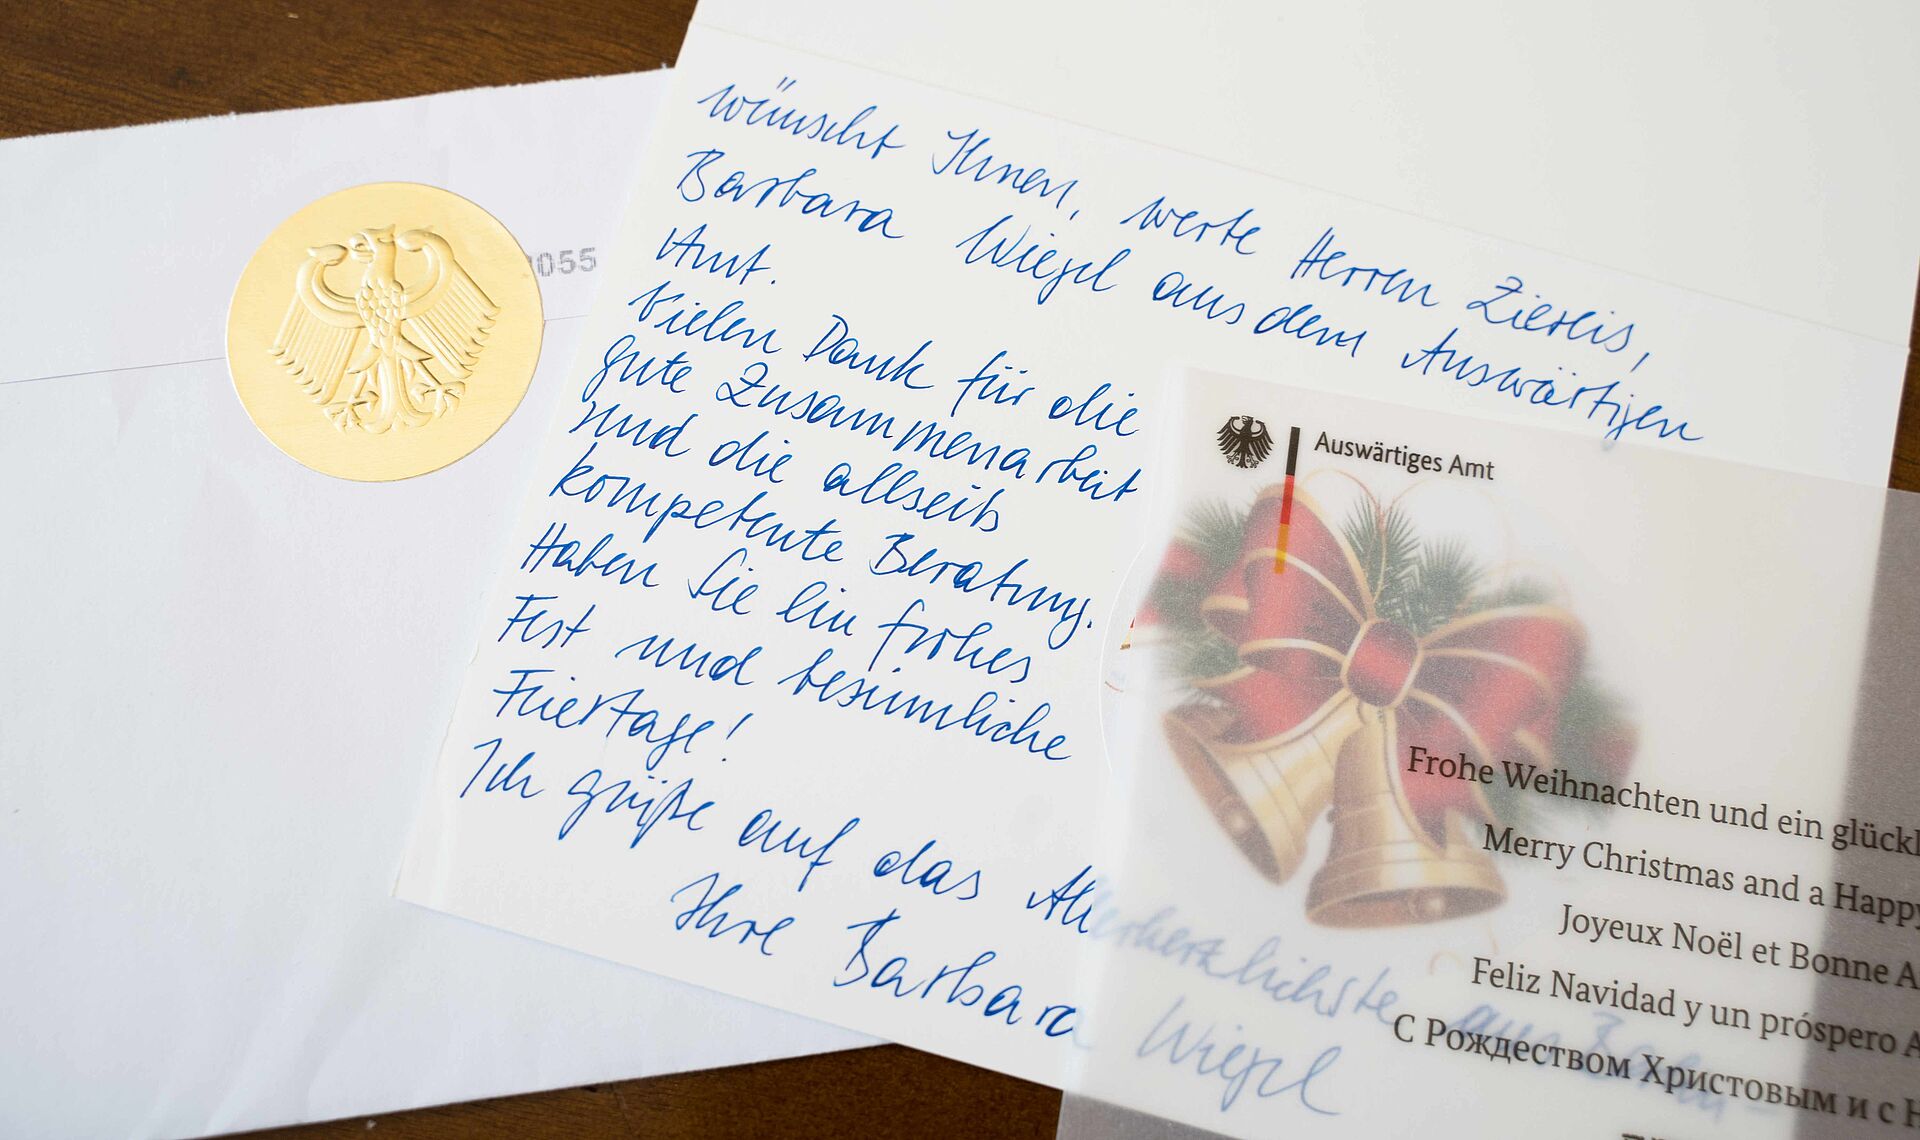 1055
wünscht Ihnen, werte Herren Ziereis,
Barbara Wiegel aus dem Auswärtigen
Amt.
Vielen Dank für die
gute Zusammenarbeit
und die allseits
kompetente Beratung.
Haben Sie ein frohes
Fest und besinnliche
Feiertage!
Ich grüße auf das Allerherzlichste aus
Ihre Barbara Wiegel
Auswärtiges Amt
Frohe Weihnachten und ein glückl
Merry Christmas and a Happy
Joyeux Noël et Bonne A
Feliz Navidad y un próspero A
С Рождеством Христовым и с Н